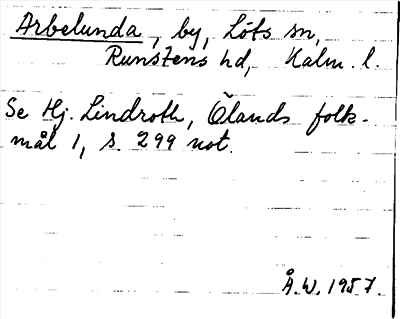 Arbelunda, by, Löts sn,
Runstens hd, Kalm. l.
Se Hj. Lindroth, Ölands folk-
mål 1, s. 299 not.
Å.W. 1957.